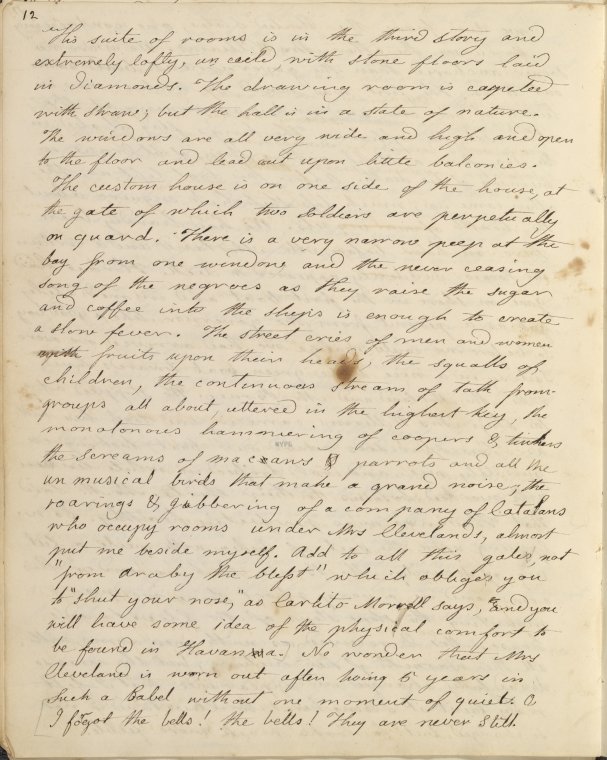 12
"His suite of rooms is in the third story and
extremely lofty, un ceiled, with stone floors laid
in diamonds. The drawing room is carpeted
with straw; but the hall is in a state of nature.
The windows are all very wide and high and open
to the floor and lead out upon little balconies.
The custom house is on one side of the house, at
the gate of which two soldiers are perpetually
on guard. There is a very narrow peep at the
bay from one window and the never ceasing
song of the negroes as they raise the sugar
and coffee into the ships is enough to create
a slow fever. The street cries of men and women
with fruits upon their heads, the squalls of
children, the continuous stream of talk from
groups all about, uttered in the highest key, the
monotonous hammering of coopers & tinkers
NYPL
the screams of macaws & parrots and all the
un musical birds that make a grand noise, the
roarings & gibbering of a company of Catalans
who occupy rooms under Mrs Clevelands, almost
put me beside myself. Add to all this gales, not
"from araby the blesst" which obliges you
to "shut your nose," as Carlito Morrell says, and you
will have some idea of the physical comfort to
be found in Havanna. No wonder that Mrs
Cleveland is worn out after living 5 years in
such a Babel without one moment of quiet. O
I forgot the bells! the bells! They are never still.